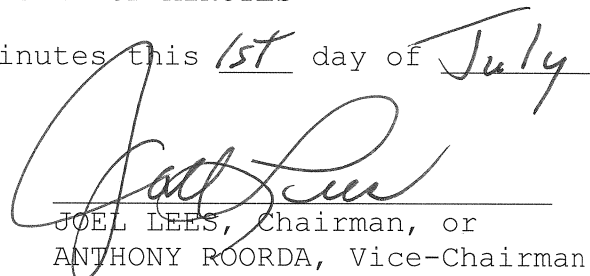 inutes this 1st day of July
Joel Lees
JOEL LEES, Chairman, or
ANTHONY ROORDA, Vice-Chairman